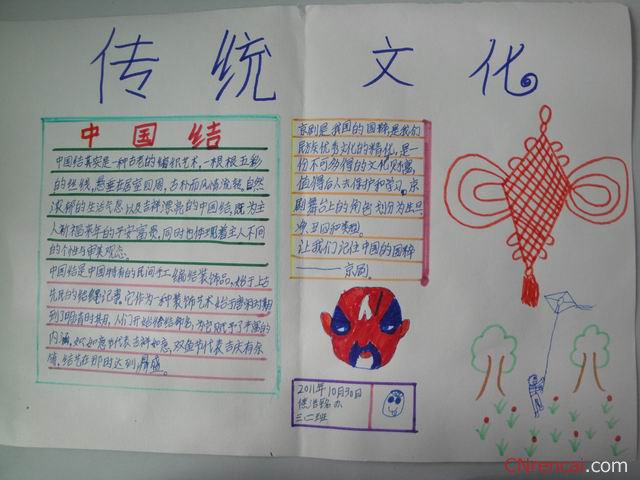 传统文化
中国结
中国结其实是一种古老的编织艺术,一根根五彩
的丝线,悬垂在居室四周,古朴而风情流转,自然
浓郁的生活气息以及吉祥漂亮的中国结,既为主
人祈福来年的平安富贵,同时也体现着主人不同
的个性与审美观念。
中国结是中国特有的民间手工编结装饰品,始于上古
先民的结绳记事。它作为一种装饰艺术始于唐宋时期
到了明清时期,人们开始给结命名,为它赋予了丰富的
内涵,如如意节代表吉祥如意,双鱼节代表吉庆有余
等,结艺在那时达到鼎盛。
京剧是我国的国粹,是我们
民族优秀文化的精化,是一
份不可多得的文化财富,
值得后人去保护和学习。京
剧舞台上的角色划分为生旦
净丑四种类型。
让我们记住中国的国粹
——京剧。
2011年10月30日
三二班
CNrencai.com